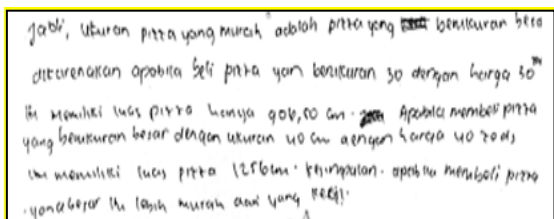 Jadi, ukuran pizza yang murah adalah pizza yang berukuran besar
dikarenakan apabila beli pizza yan berukuran 30 dengan harga 30
memiliki luas pizza hanya 906,50 cm. Apabila membeli pizza
yang berukuran besar dengan ukuran 40 cm dengan harga 40 zeds,
memiliki luas pizza 1256cm. kesimpulan. apabila membeli pizza
yang besar lebih murah dari yang kecil.